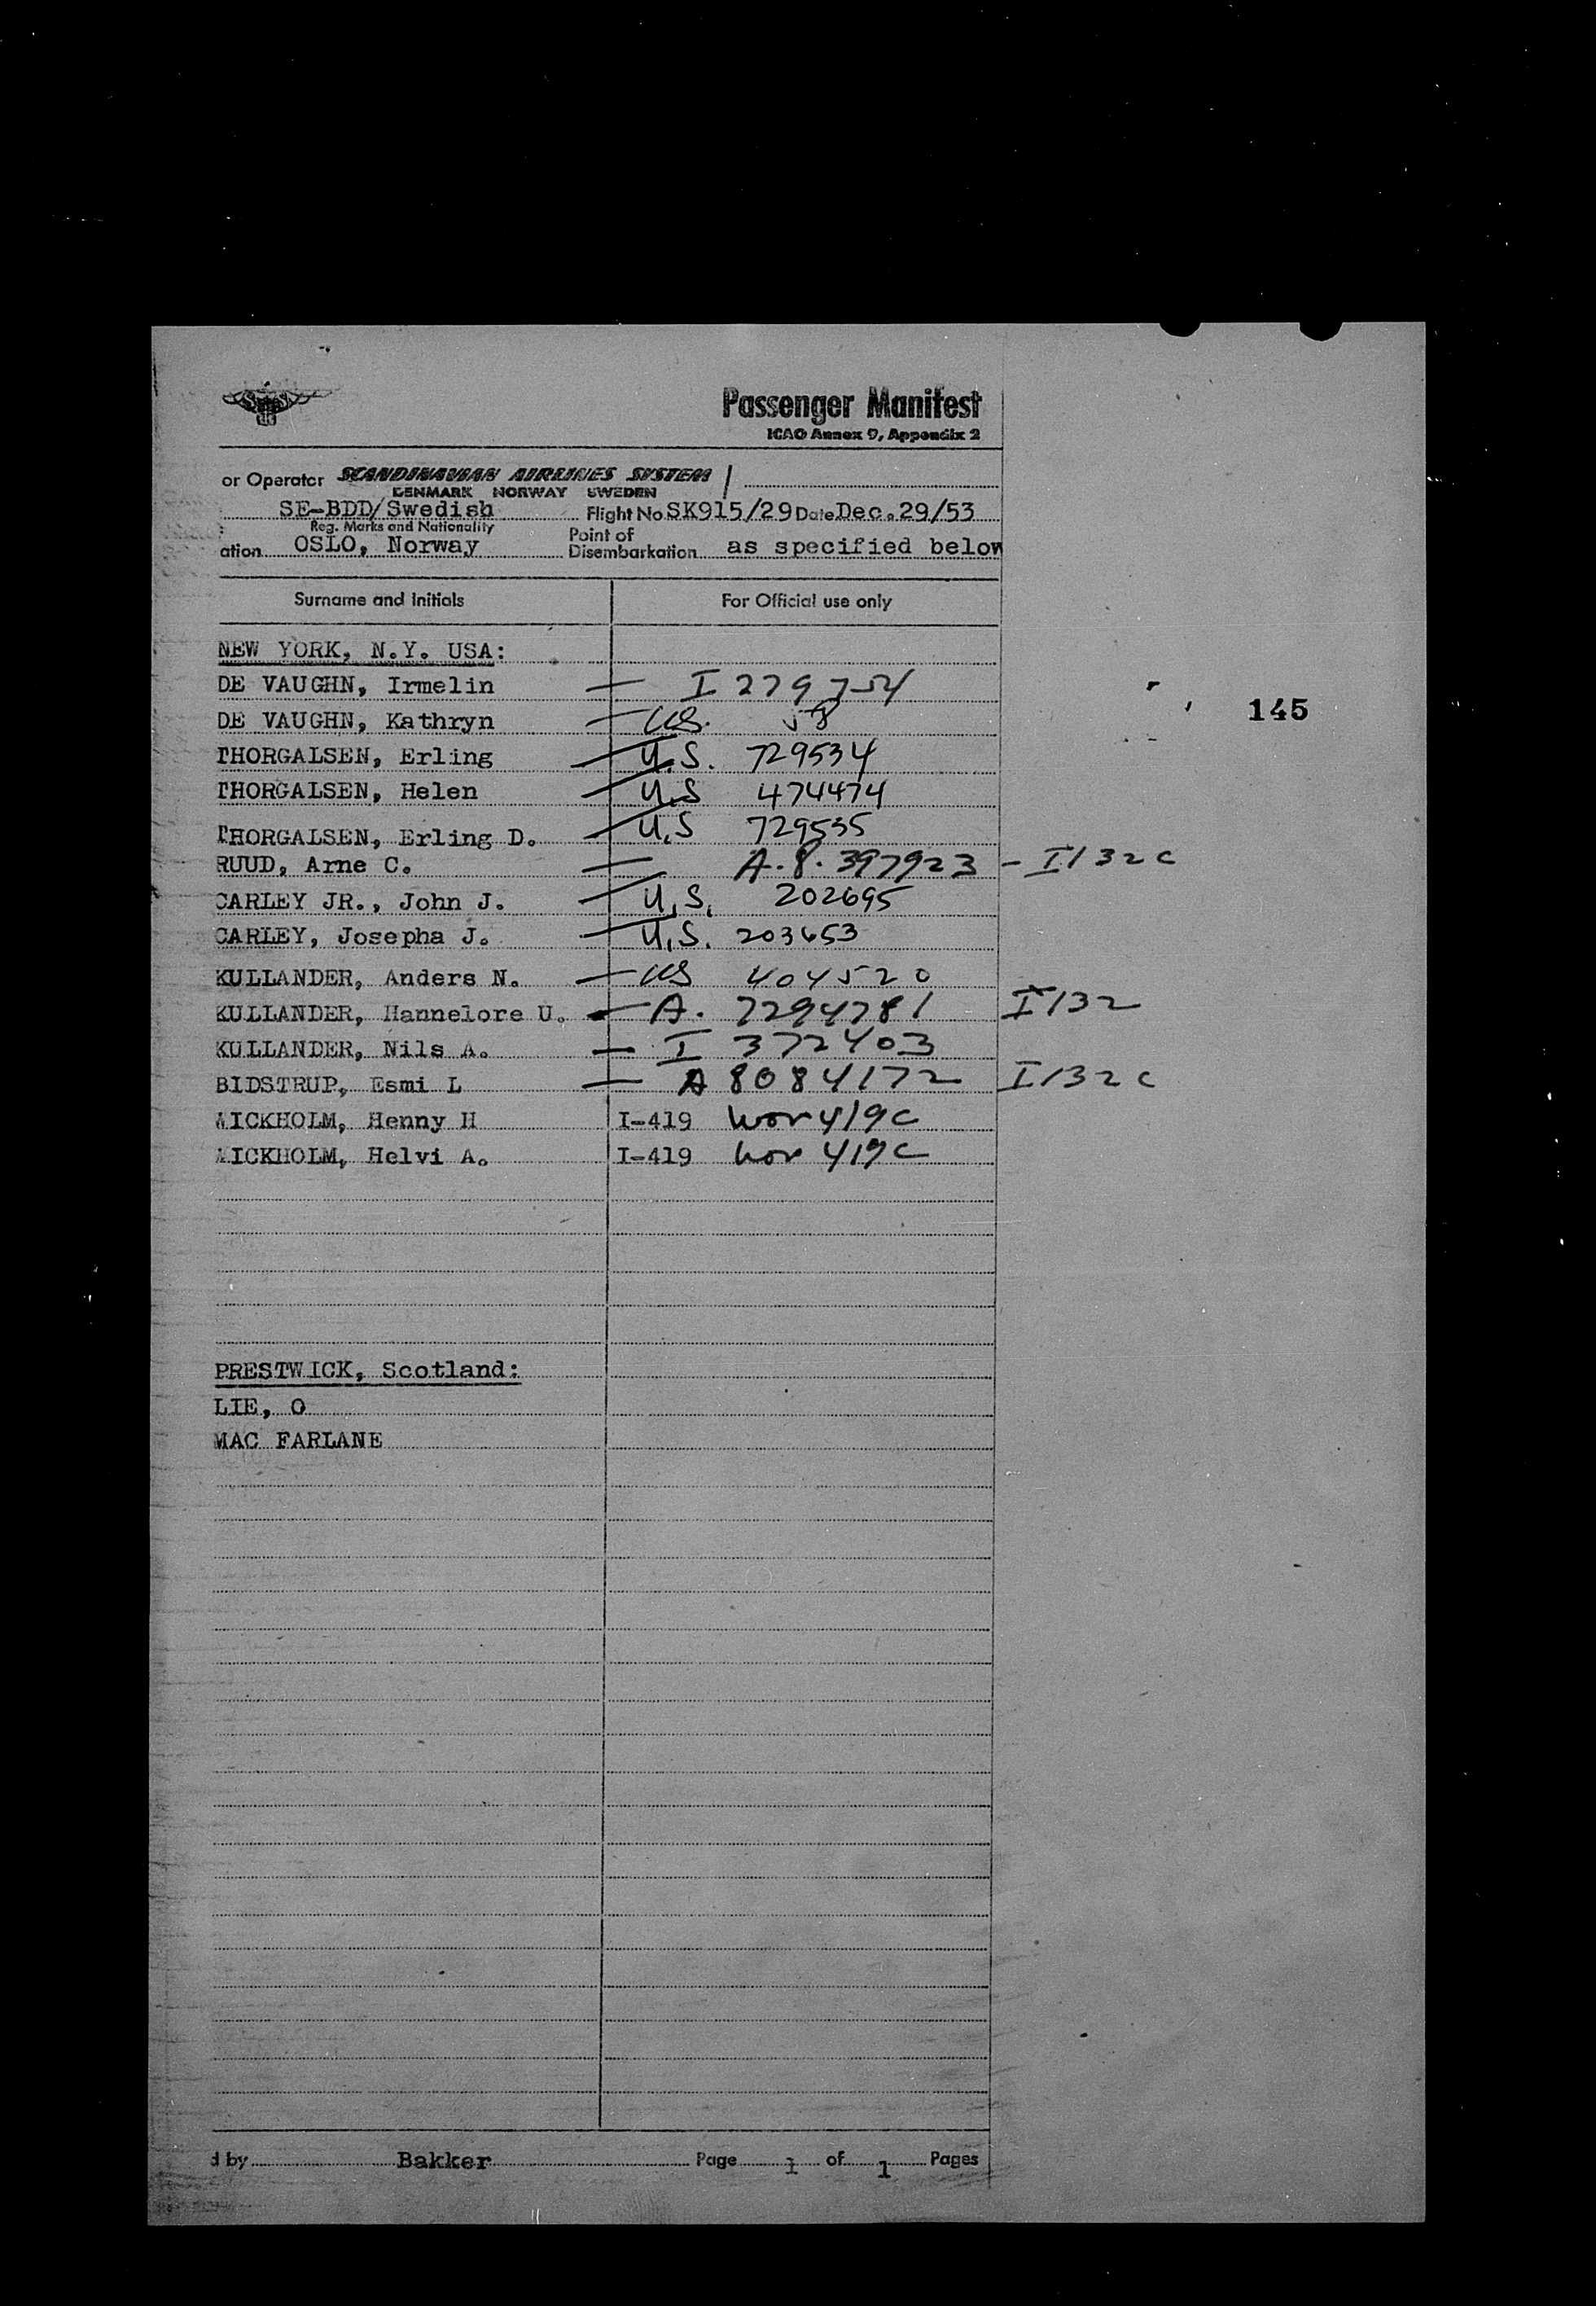 SAS
Passenger Manifest
ICAO Annex 9, Appendix 2
or Operator SCANDINAVIAN AIRLINES SYSTEM
DENMARK NORWAY SWEDEN
SE-BDD/Swedish Flight No. SK915/29 Date Dec. 29/53
Reg. Marks and Nationality
ation OSLO, Norway Point of Disembarkation as specified below
Surname and Initials For Official use only
NEW YORK, N.Y. USA:
DE VAUGHN, Irmelin — I 279754
145
DE VAUGHN, Kathryn — US. 58
THORGALSEN, Erling — U.S. 729534
THORGALSEN, Helen — U.S 474474
THORGALSEN, Erling D. — U.S 729535
RUUD, Arne C. — A.8.397923 - I132c
CARLEY JR., John J. — U.S. 202695
CARLEY, Josepha J. — U.S. 203653
KULLANDER, Anders N. — US 404520
KULLANDER, Hannelore U. — A. 7294781 I132
KULLANDER, Nils A. — I 372403
BIDSTRUP, Esmi L — A 8084172 I132c
WICKHOLM, Henny H I-419 wor 419c
WICKHOLM, Helvi A. I-419 wor 419c
PRESTWICK, Scotland:
LIE, O
MAC FARLANE
d by Bakker Page 1 of 1 Pages